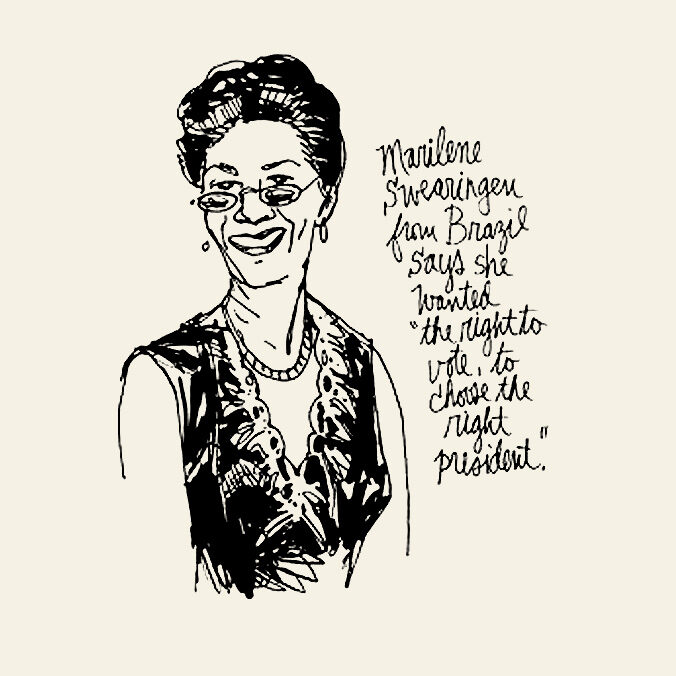 Marilene
Swearingen
from Brazil
Says she
wanted
"the right to
vote, to
choose the
right
president."